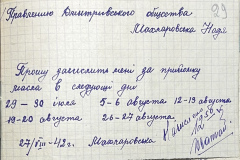 29
Правлению Дмытривського обчества
Махларовська Надя
Прошу засчислить мені за приёмку
масла в следующи дни
29 – 30 июля 5-6 августа 12-13 августа
19-20 августа 26-27 августа
27/VIII-42г. Махларовська